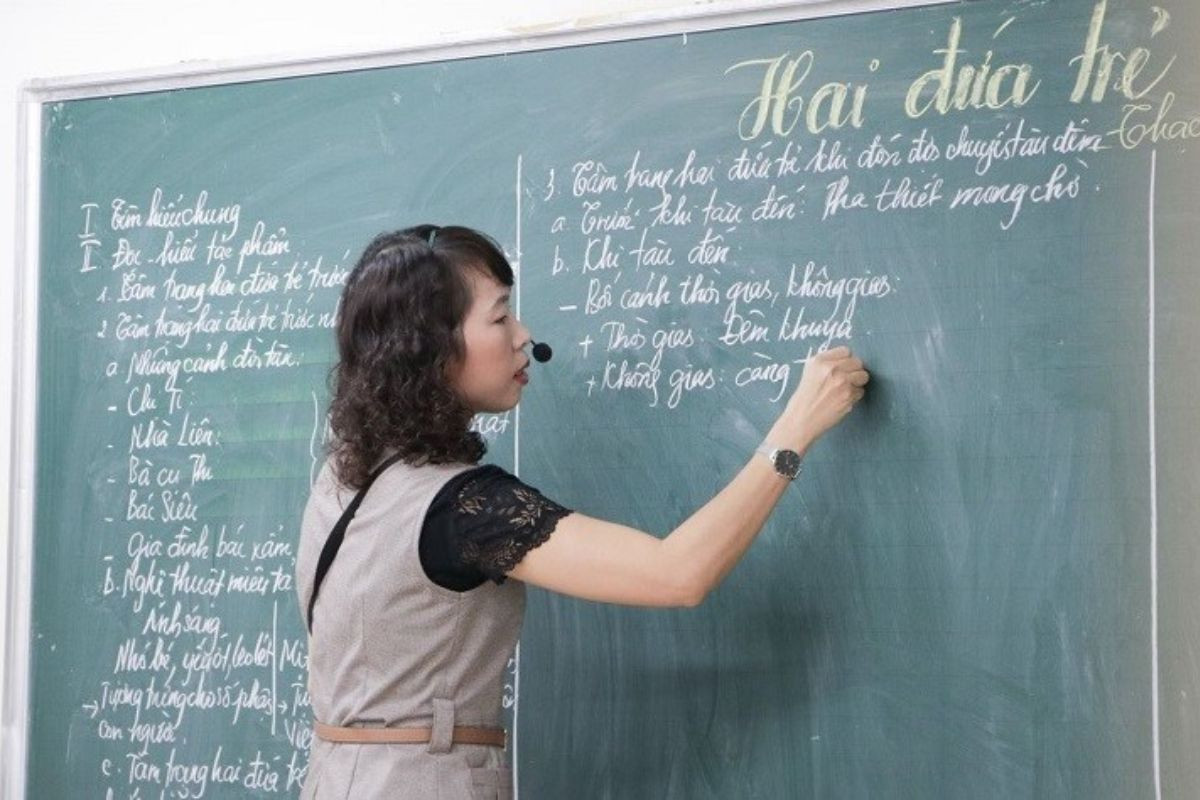 Hai đứa trẻ
Thạc
I Tìm hiểu chung
II Đọc - hiểu tác phẩm
1. Tâm trạng hai đứa trẻ trước
2. Tâm trạng hai đứa trẻ trước
a. Những cảnh đời tàn:
- Chị Tí:
- Nhà Liên:
- Bà cụ Thi
- Bác Siêu
- Gia đình bác xẩm
b. Nghệ thuật miêu tả
Ánh sáng
Nhỏ bé, yếu ớt, leo lét
→ Tượng trưng cho số phận
con người.
c. Tâm trạng hai đứa trẻ
3. Tâm trạng hai đứa trẻ khi đón đợi chuyến tàu đêm
a. Trước khi tàu đến: Tha thiết mong chờ.
b. Khi tàu đến:
- Bối cảnh thời gian, không gian:
+ Thời gian: Đêm khuya
+ Không gian: càng